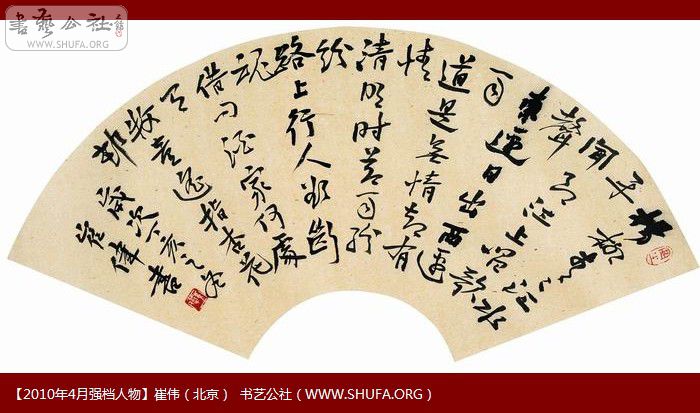 書藝公社
WWW.SHUFA.ORG
楊柳青々江水
平
聞郎江上唱歌
聲
東邊日出西邊
雨
道是無情却有
情
清明时节雨紛
紛
路上行人欲斷
魂
借问酒家何處
有
牧童遥指杏花
邨
歲次丁亥之冬
崔偉書
【2010年4月强档人物】崔伟（北京） 书艺公社（WWW.SHUFA.ORG）